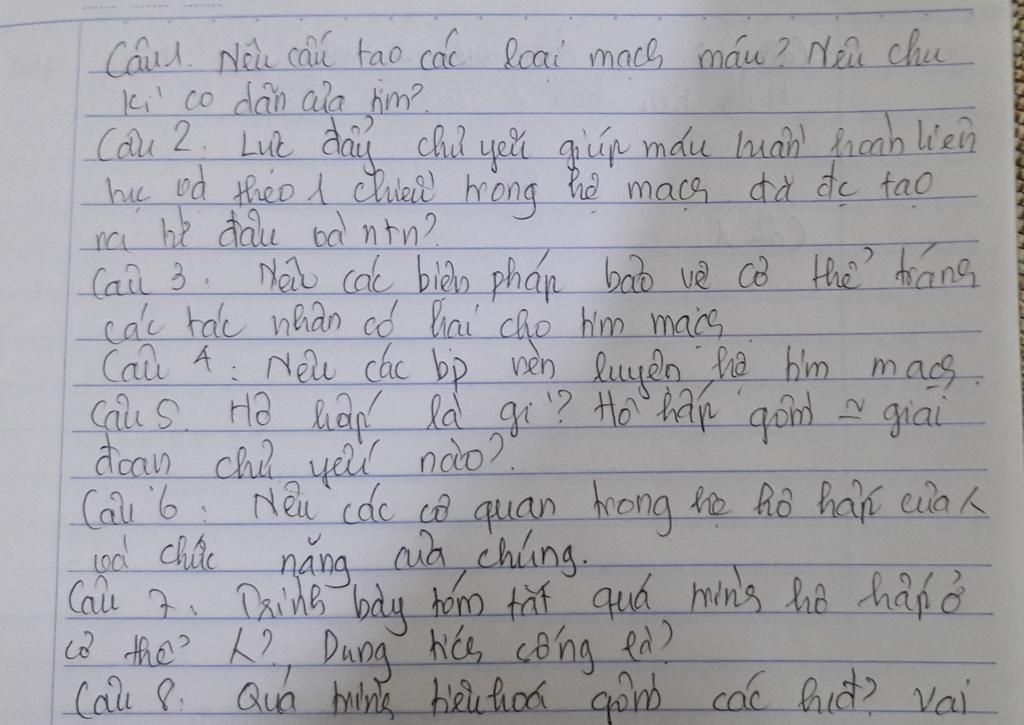 Câu 1. Nêu cấu tạo các loại mạch máu? Nêu chu
kì co dãn của tim?
Câu 2. Lực đẩy chủ yếu giúp máu tuần hoàn liên
tục và theo 1 chiều trong hệ mạch đã đc tạo
ra từ đâu và ntn?
Câu 3: Nêu các biện pháp bảo vệ cơ thể tránh
các tác nhân có hại cho tim mạch
Câu 4: Nêu các bp rèn luyện hệ tim mạch.
Câu 5. Hô hấp là gì? Hô hấp gồm ~ giai
đoạn chủ yếu nào?
Câu 6: Nêu các cơ quan trong hệ hô hấp của
và chức năng của chúng.
Câu 7: Trình bày tóm tắt quá trình hô hấp ở
cơ thể ? Dung tích sống là?
Câu 8: Quá trình tiêu hoá gồm các hđ? Vai